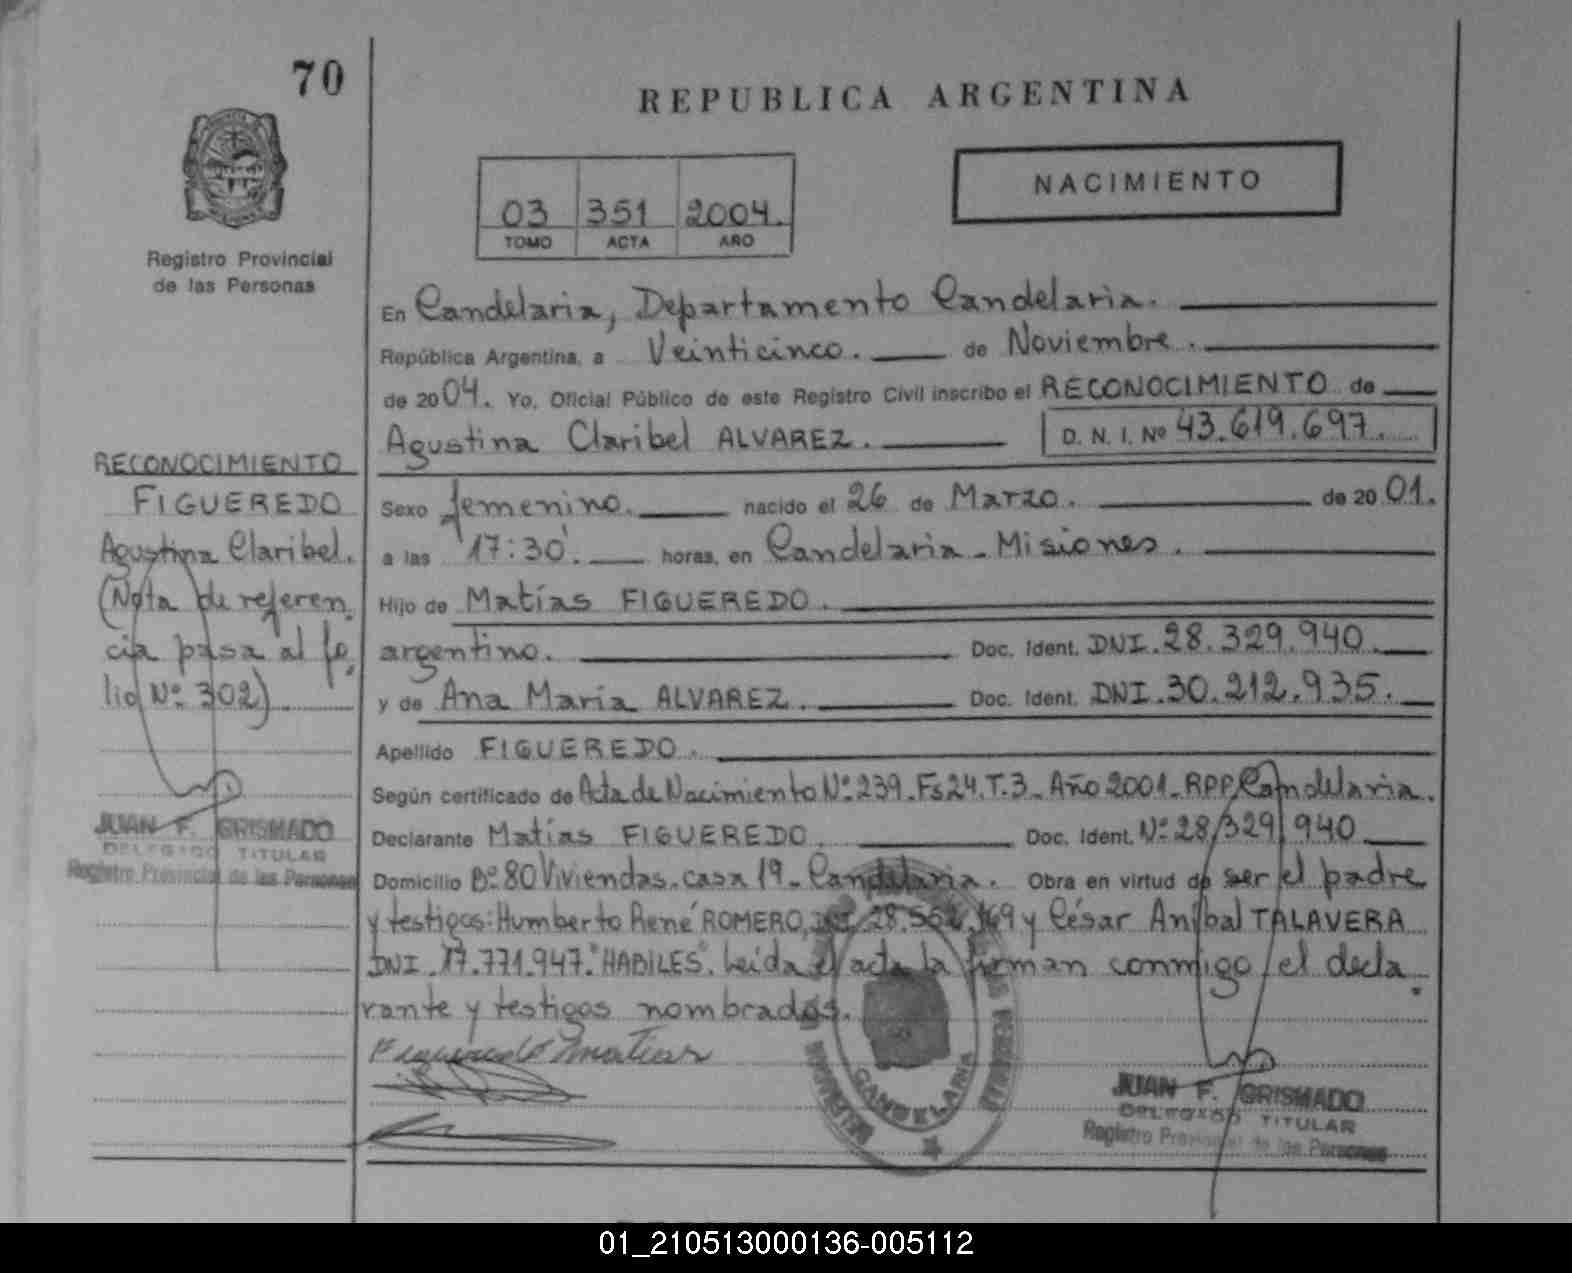 70
REPUBLICA ARGENTINA
NACIMIENTO
03 351 2004.
TOMO ACTA AÑO
Registro Provincial
de las Personas
En Candelaria, Departamento Candelaria.
República Argentina, a Veinticinco. de Noviembre.
de 2004. Yo, Oficial Público de este Registro Civil inscribo el RECONOCIMIENTO de
Agustina Claribel ALVAREZ. D. N. I. Nº 43.619.697.
Sexo femenino. nacido el 26 de Marzo. de 2001.
a las 17:30. horas, en Candelaria - Misiones.
Hijo de Matías FIGUEREDO.
argentino. Doc. Ident. DNI. 28.329.940.
y de Ana María ALVAREZ. Doc. Ident. DNI. 30.212.935.
Apellido FIGUEREDO.
Según certificado de Acta de Nacimiento Nº 239. Fs 24. T. 3 - Año 2001 - RPP Candelaria.
Declarante Matías FIGUEREDO. Doc. Ident. Nº 28.329.940
Domicilio Bº 80 Viviendas. casa 19 - Candelaria. Obra en virtud de ser el padre
y testigos: Humberto René ROMERO, y César Aníbal TALAVERA
DNI. 17.771.947. "HABILES". Leida el acta la firman conmigo el decla
rante y testigos nombrados.
Figueredo Matias
RECONOCIMIENTO
FIGUEREDO
Agustina Claribel.
(Nota de referen
cia pasa al fo
lio Nº 302)
JUAN F. GRISMADO
DELEGADO TITULAR
Registro Provincial de las Personas
CANDELARIA
JUAN F. GRISMADO
DELEGADO TITULAR
Registro Provincial de las Personas
01_210513000136-005112